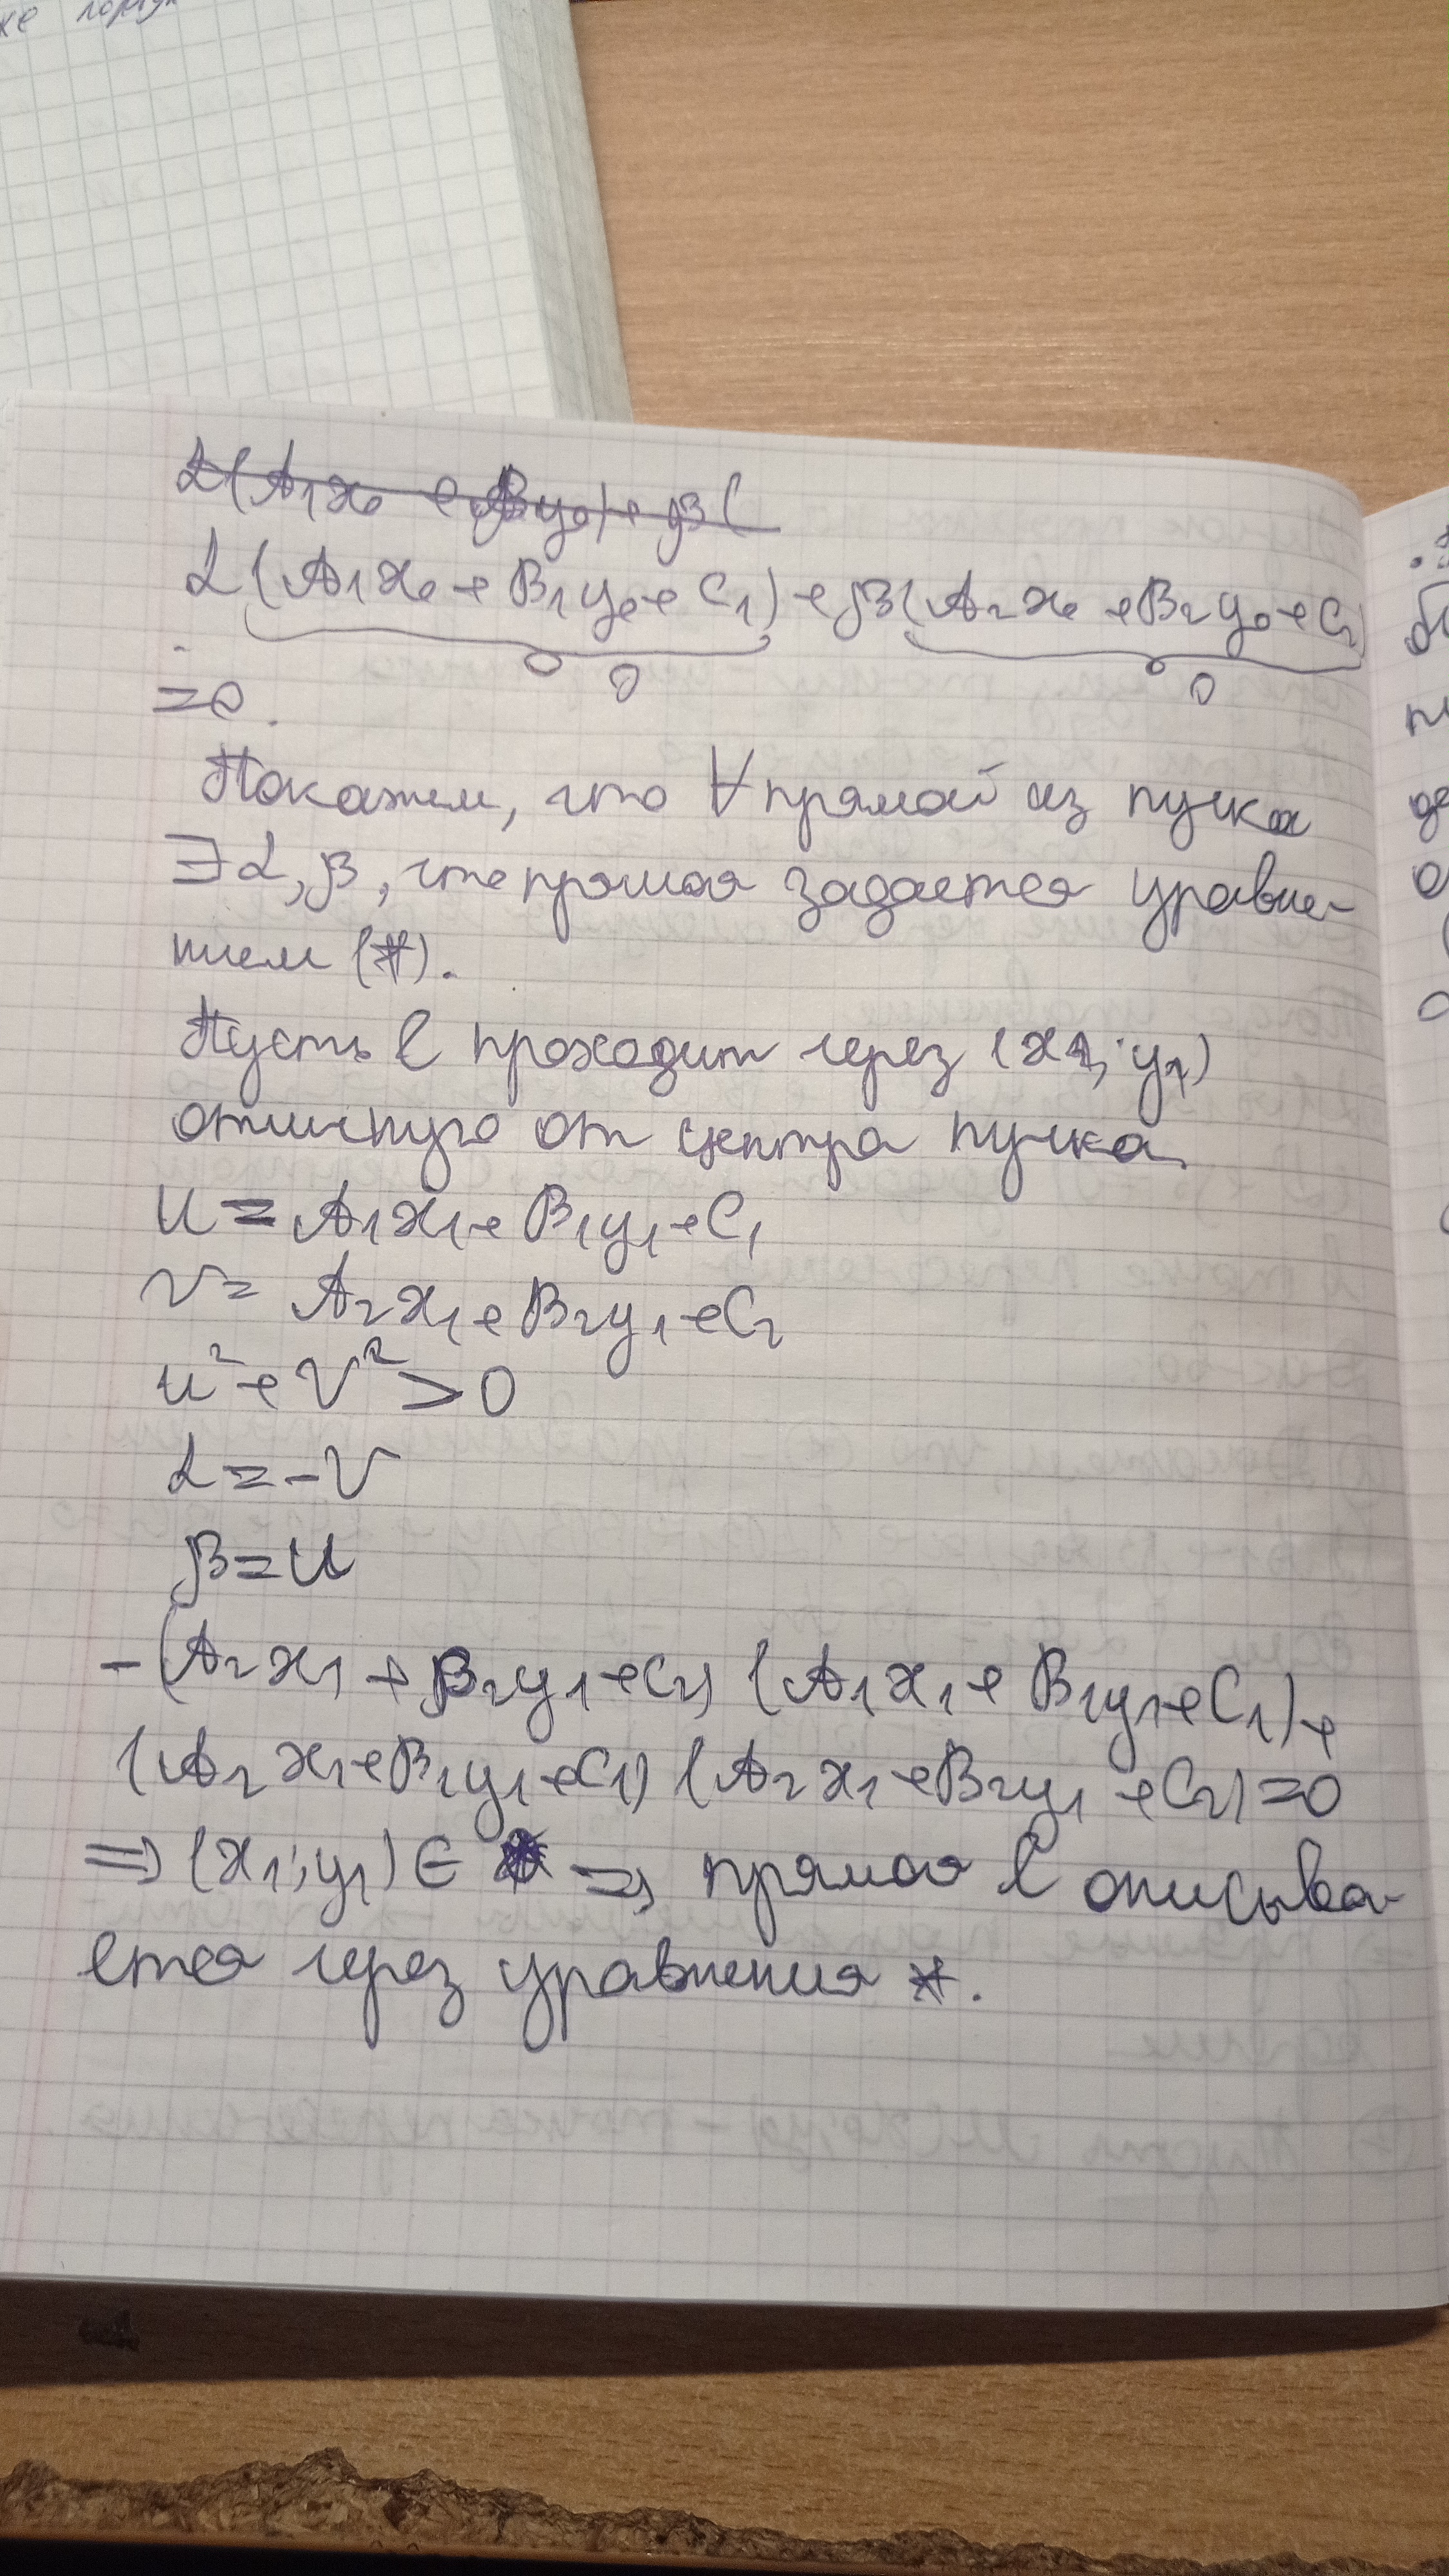 же
α(A₁x₀ + B₁y₀) + β(
α(A₁x₀ + B₁y₀ + C₁) + β(A₂x₀ + B₂y₀ + C₂)
0 0
= 0.
Покажем, что ∀ прямой из пучка
∃ α, β, что прямая задается уравне-
нием (*).
Пусть l проходит через (x₁; y₁)
отличную от центра пучка.
u = A₁x₁ + B₁y₁ + C₁
v = A₂x₁ + B₂y₁ + C₂
u² + v² > 0
α = -v
β = u
-(A₂x₁ + B₂y₁ + C₂) (A₁x₁ + B₁y₁ + C₁) +
(A₂x₁ + B₁y₁ + C₁) (A₂x₁ + B₂y₁ + C₂) = 0
⇒ (x₁; y₁) ∈ * ⇒ прямая l описыва-
ется через уравнения *.